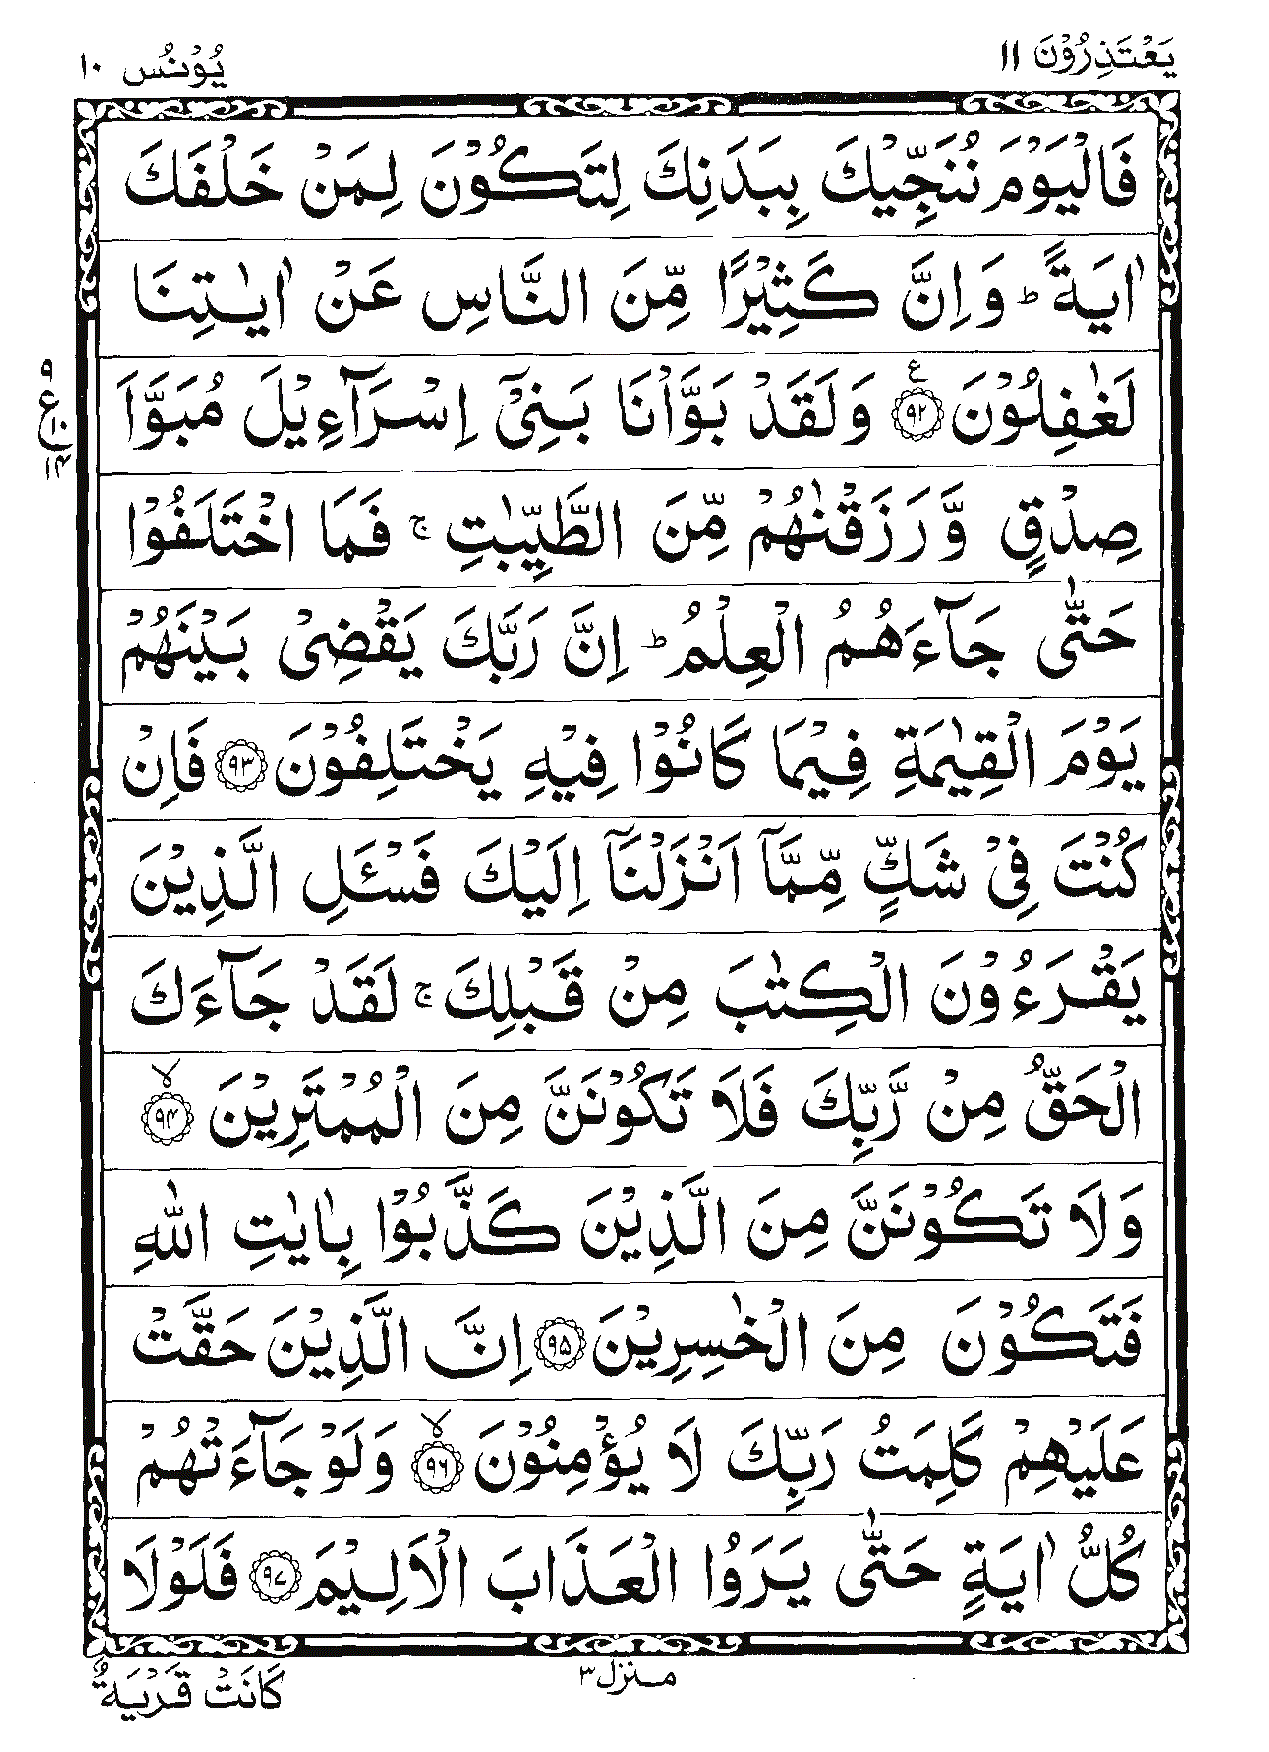 يَعْتَذِرُوْنَ ١١
يُوْنُس ١٠
فَالْيَوْمَ نُنَجِّيْكَ بِبَدَنِكَ لِتَكُوْنَ لِمَنْ خَلْفَكَ
اٰيَةً ؕ وَاِنَّ كَثِيْرًا مِّنَ النَّاسِ عَنْ اٰيٰتِنَا
لَغٰفِلُوْنَ ﴿۹۲﴾ ع وَلَقَدْ بَوَّاْنَا بَنِيْۤ اِسْرَآءِيْلَ مُبَوَّاَ
۹
ع
١٠
١۴
صِدْقٍ وَّرَزَقْنٰهُمْ مِّنَ الطَّيِّبٰتِ ۚ فَمَا اخْتَلَفُوْا
حَتّٰى جَآءَهُمُ الْعِلْمُ ؕ اِنَّ رَبَّكَ يَقْضِيْ بَيْنَهُمْ
يَوْمَ الْقِيٰمَةِ فِيْمَا كَانُوْا فِيْهِ يَخْتَلِفُوْنَ ﴿۹۳﴾ فَاِنْ
كُنْتَ فِيْ شَكٍّ مِّمَّاۤ اَنْزَلْنَاۤ اِلَيْكَ فَسْـَٔلِ الَّذِيْنَ
يَقْرَءُوْنَ الْكِتٰبَ مِنْ قَبْلِكَ ۚ لَقَدْ جَآءَكَ
الْحَقُّ مِنْ رَّبِّكَ فَلَا تَكُوْنَنَّ مِنَ الْمُمْتَرِيْنَ ﴿۹۴﴾ ۙ
وَلَا تَكُوْنَنَّ مِنَ الَّذِيْنَ كَذَّبُوْا بِاٰيٰتِ اللّٰهِ
فَتَكُوْنَ مِنَ الْخٰسِرِيْنَ ﴿۹۵﴾ اِنَّ الَّذِيْنَ حَقَّتْ
عَلَيْهِمْ كَلِمَتُ رَبِّكَ لَا يُؤْمِنُوْنَ ﴿۹۶﴾ ۙ وَلَوْ جَآءَتْهُمْ
كُلُّ اٰيَةٍ حَتّٰى يَرَوُا الْعَذَابَ الْاَلِيْمَ ﴿۹۷﴾ فَلَوْلَا
منزل ٣
كَانَتْ قَرْيَةٌ